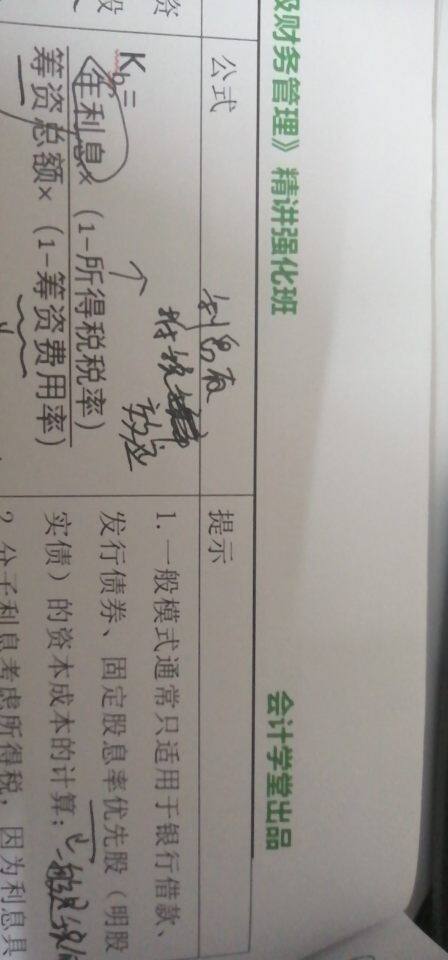 级财务管理》精讲强化班
会计学堂出品
公式
提示
资
股
K_b=
年利息×(1-所得税税率)
筹资总额×(1-筹资费用率)
利息有
抵税
效应
1. 一般模式通常只适用于银行借款、
发行债券、固定股息率优先股(明股
实债)的资本成本的计算;
2. 分子利息考虑所得税,因为利息具